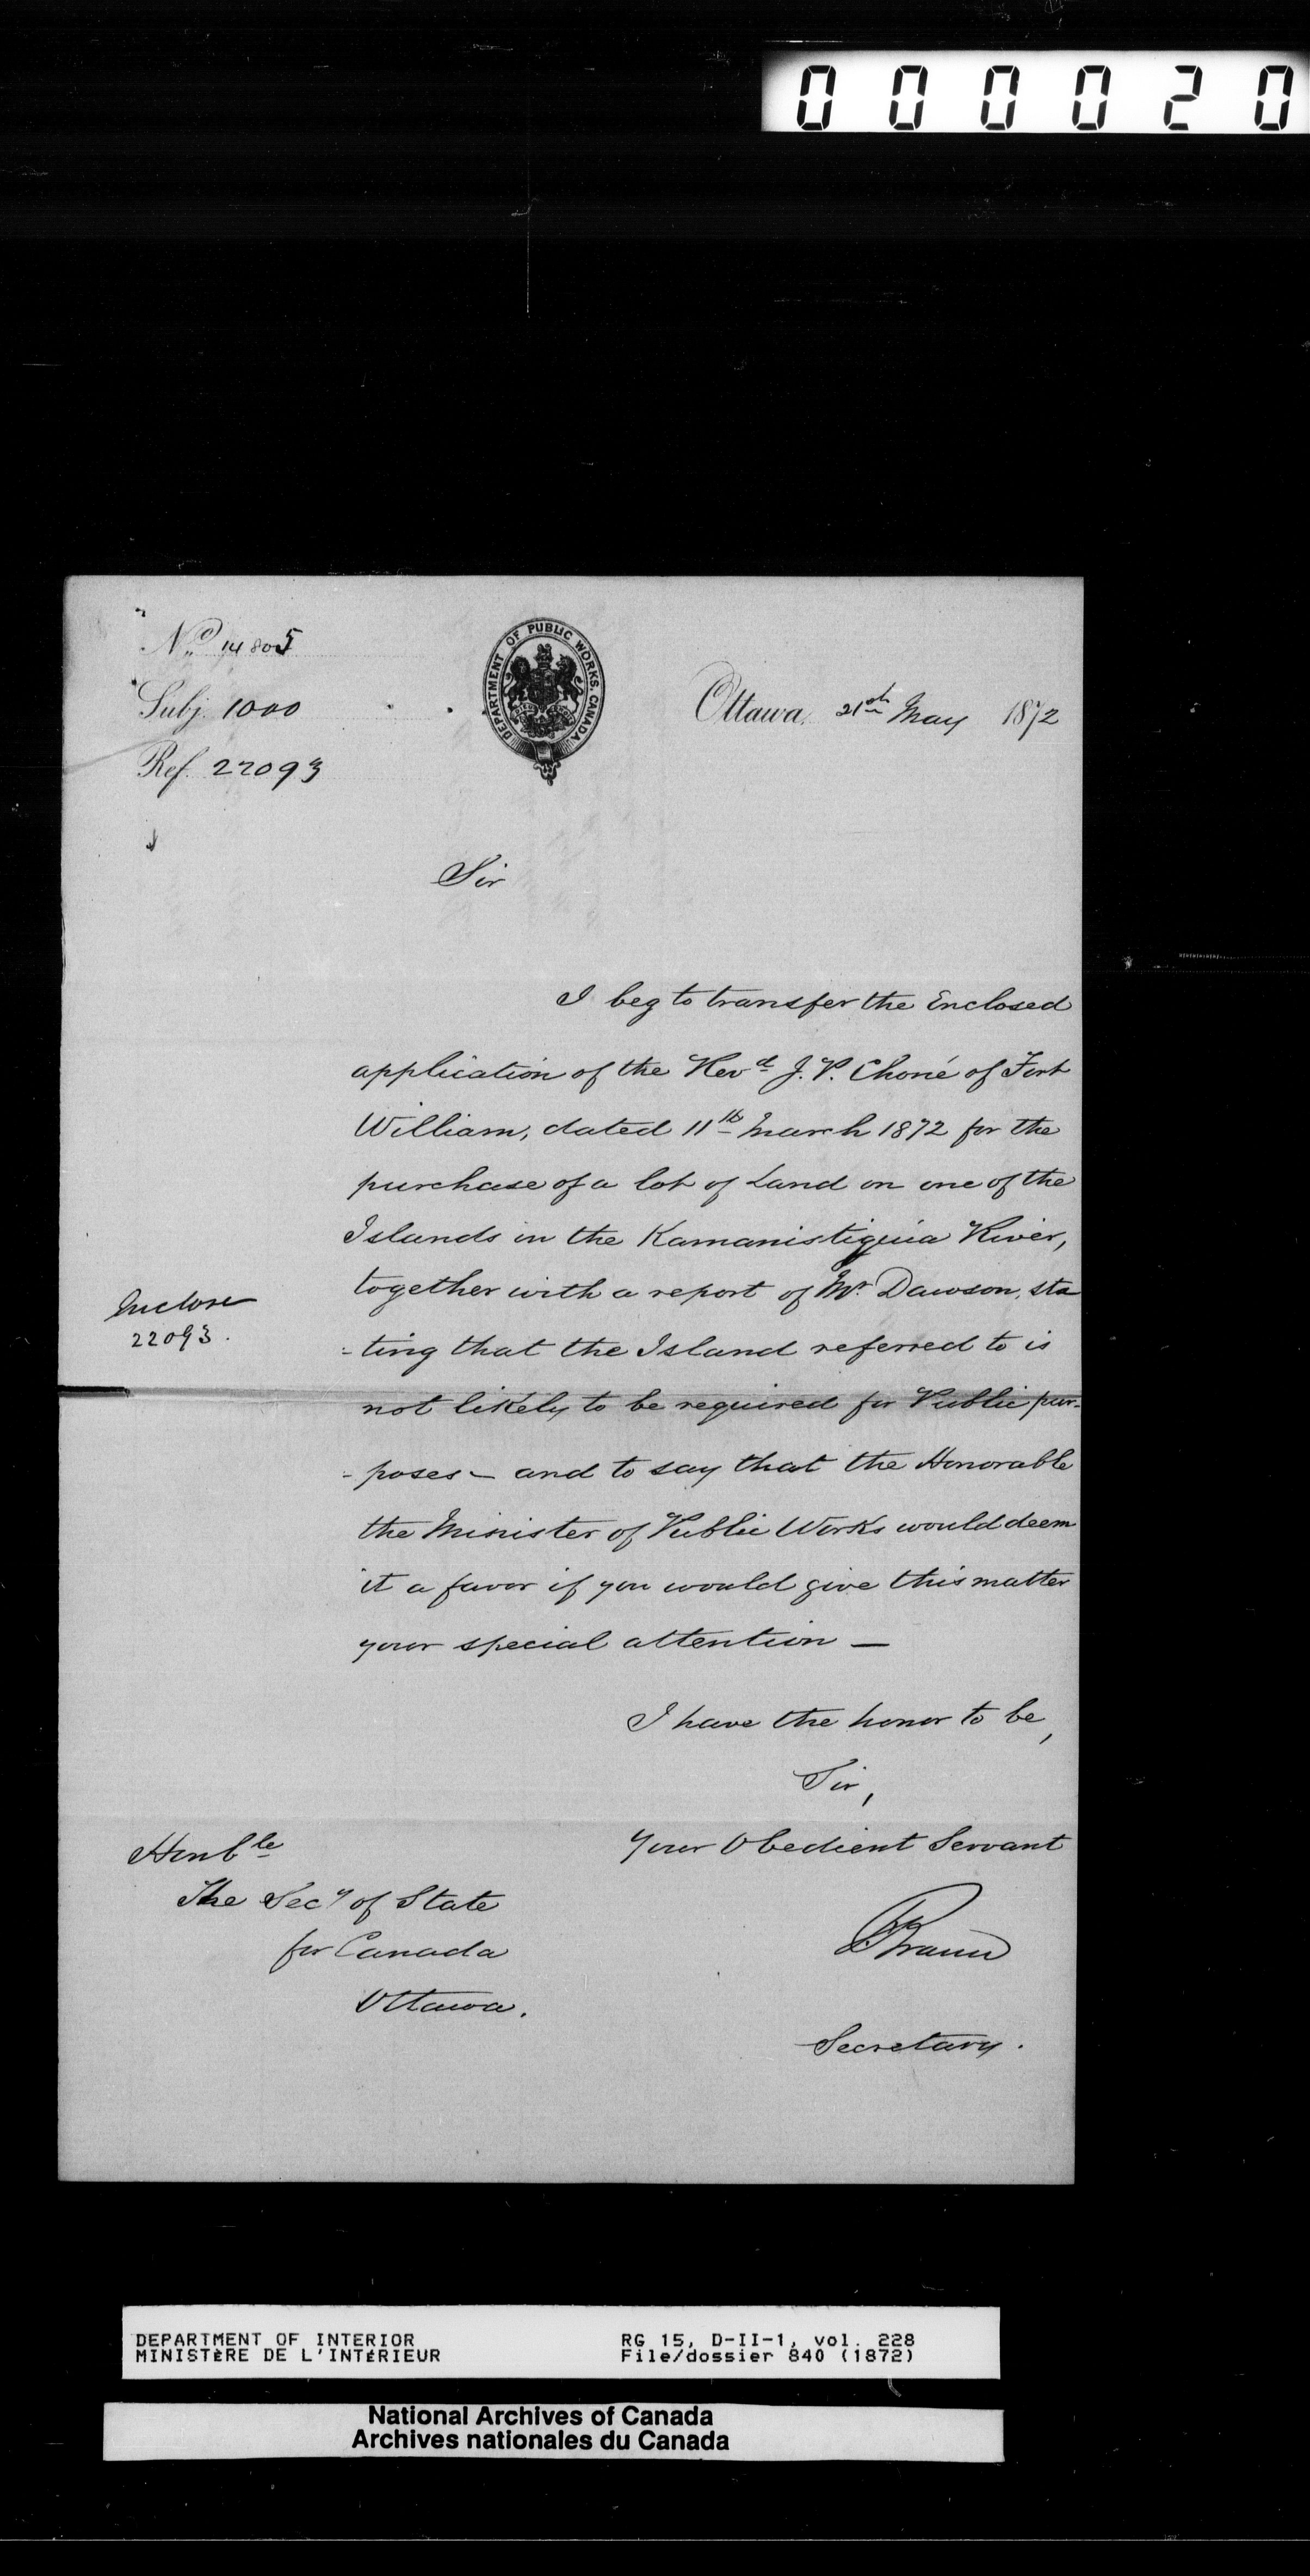 000020
No. 14805
Subj. 1000
Ref. 22093
DEPARTMENT OF PUBLIC WORKS. CANADA.
Ottawa, 21st May 1872
Sir
I beg to transfer the Enclosed
application of the Revd J. P. Choné of Fort
William, dated 11th March 1872 for the
purchase of a lot of Land on one of the
Islands in the Kamanistiquia River,
together with a report of Mr Dawson, sta
-ting that the Island referred to is
not likely to be required for Public pur-
-poses – and to say that the Honorable
the Minister of Public Works would deem
it a favor if you would give this matter
your special attention —
Inclose
22093.
I have the honor to be,
Sir,
Your Obedient Servant
Braun
Secretary.
Honble
The Secy of State
for Canada
Ottawa.
DEPARTMENT OF INTERIOR
MINISTÈRE DE L'INTÉRIEUR
RG 15, D-II-1, vol. 228
File/dossier 840 (1872)
National Archives of Canada
Archives nationales du Canada